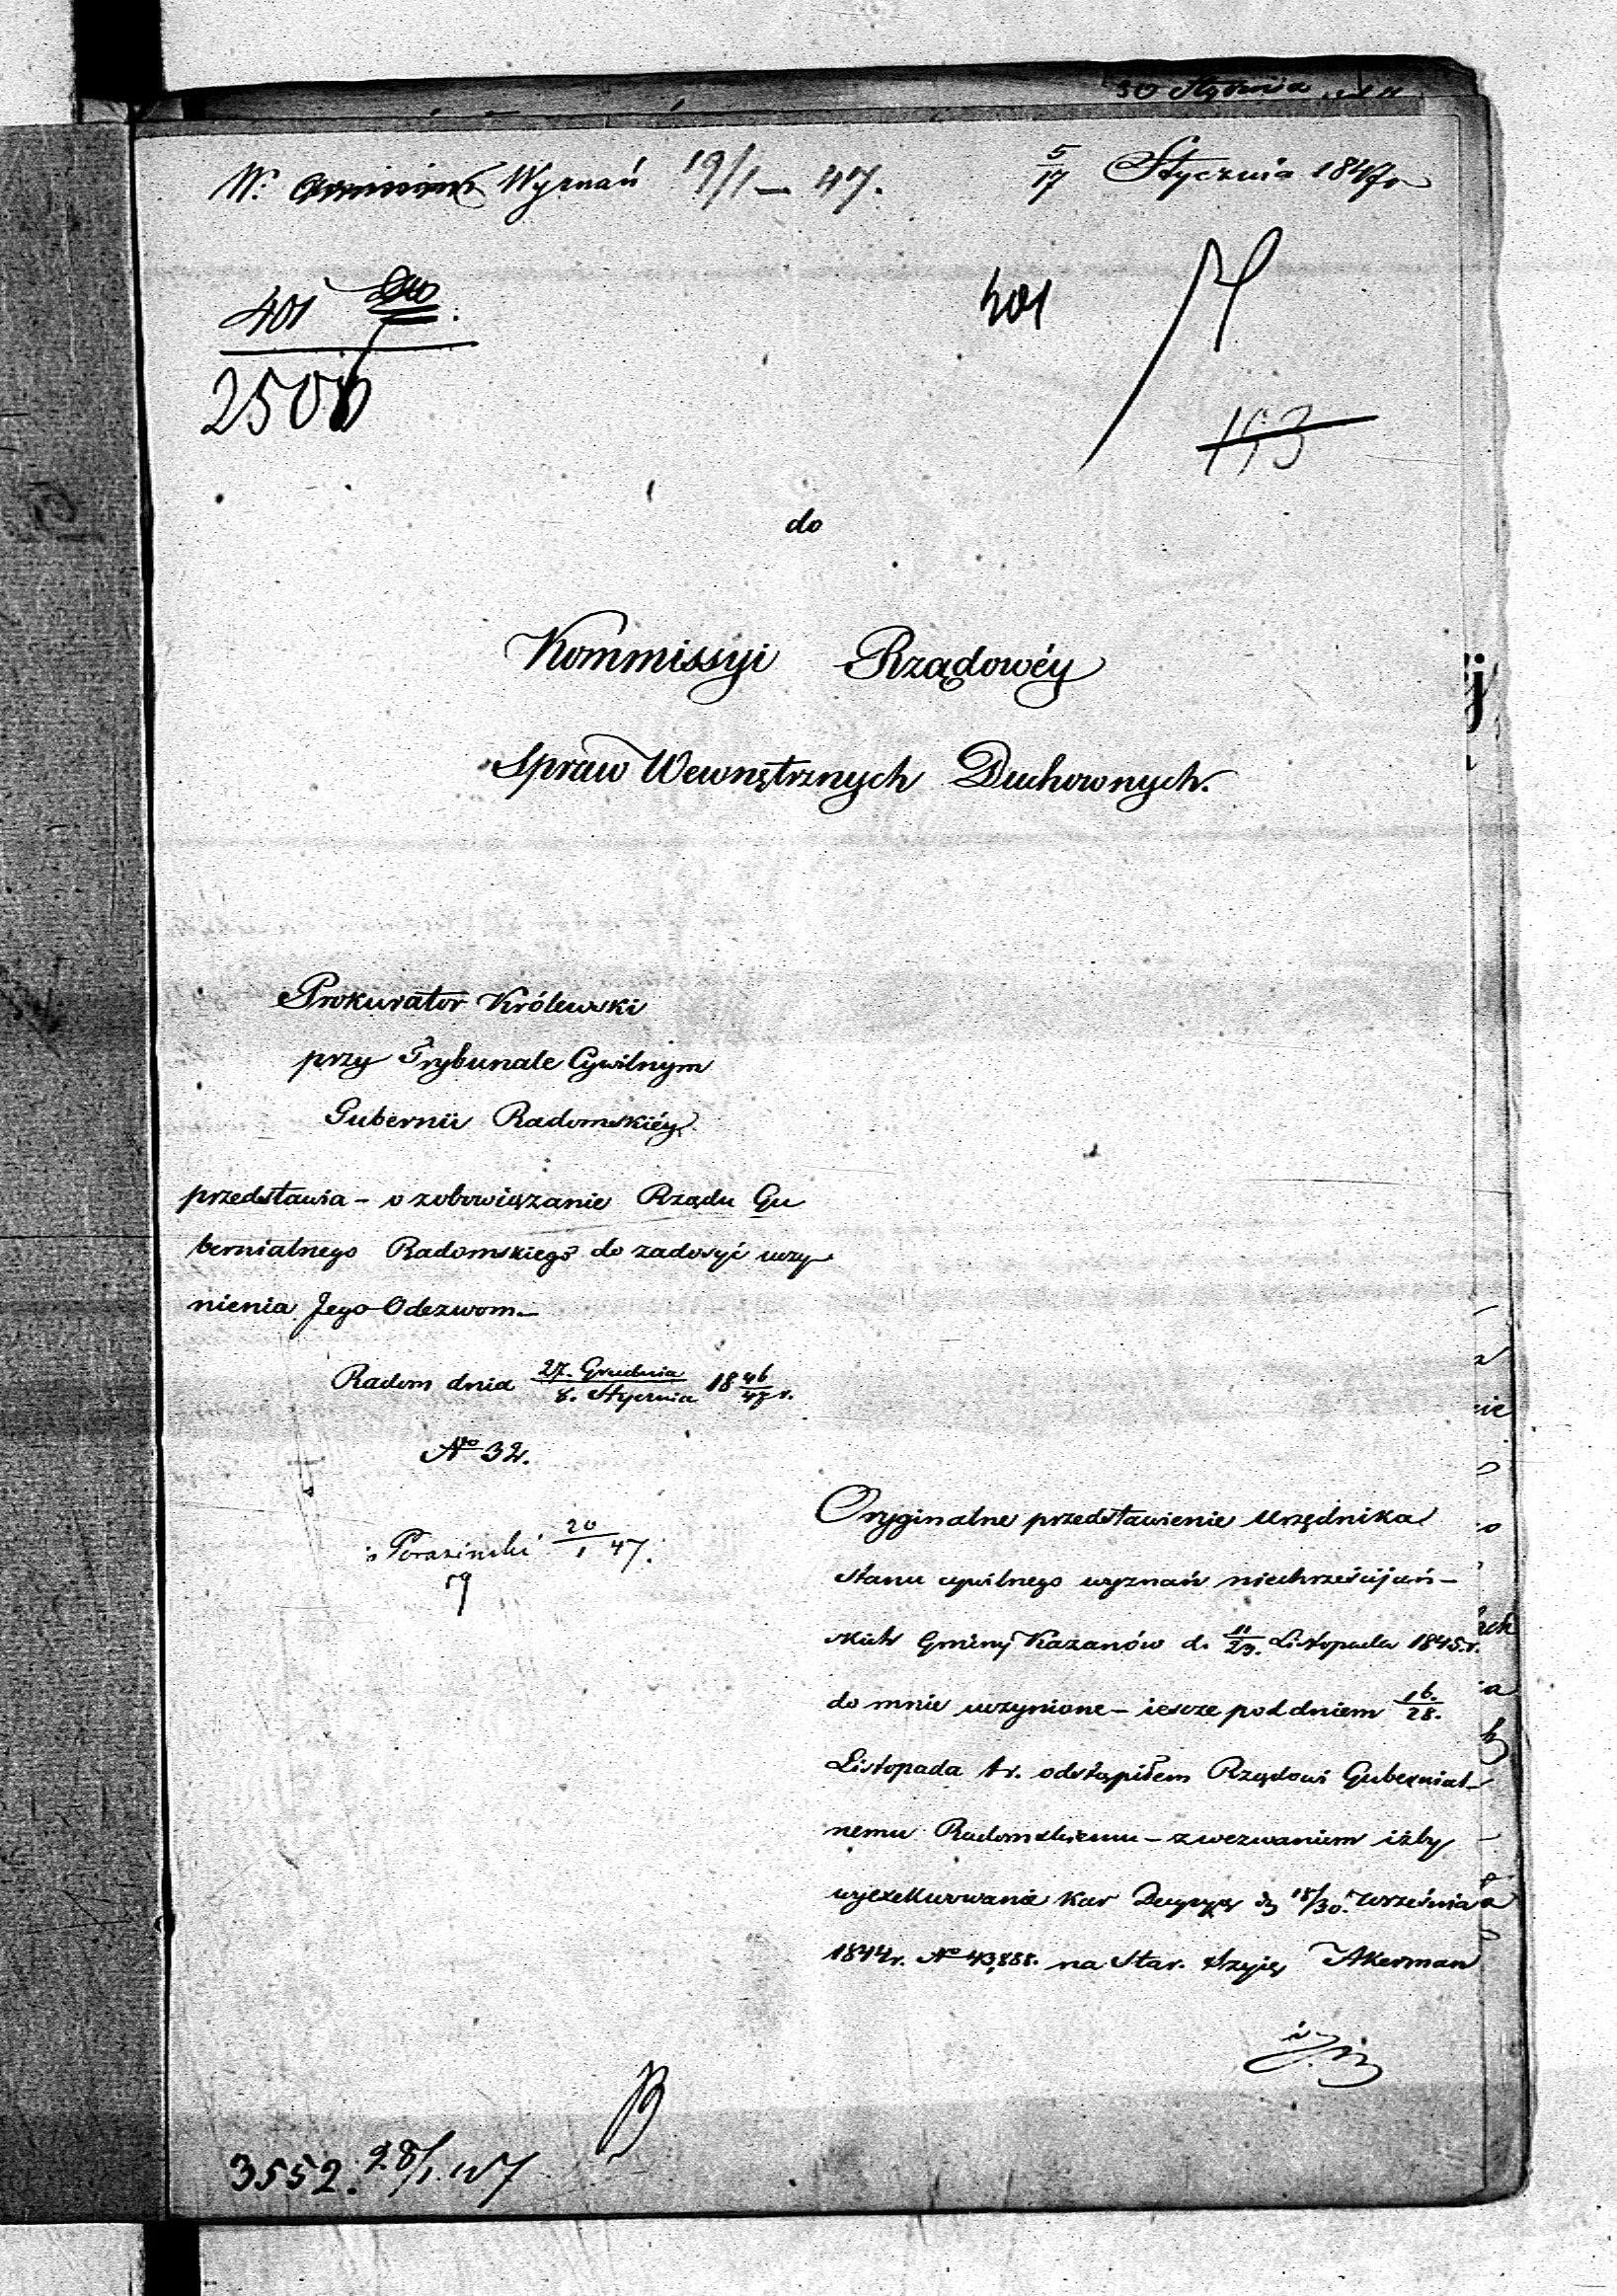 W: Wyznań 19/1 — 47.
5/17 Stycznia 1847 r
401
2506
401
153
do
Kommissyi Rządowéy
Spraw Wewnętrznych Duchownych.
Prokurator Królewski
przy Trybunale Cywilnym
Gubernii Radomskiéy
przedstawia – o zobowiązanie Rządu Gu
bernialnego Radomskiego do zadosyć uczy
nienia Jego Odezwom. –
Radom dnia 27. Grudnia / 8. Stycznia 18 46/47 r.
No 32.
20/1 47.
Oryginalne przedstawienie Urzędnika
stanu cywilnego wyznań niechrześcijań–
skich Gminy Kazanów d. 11/23. Listopada 1845. r.
do mnie uczynione – ieszcze pod dniem 16./28.
Listopada t. r. odstąpiłem Rządowi Gubernial–
nemu Radomskiemu – z wezwaniem iżby
wyexekwowanie kar Decyzyą z 18/30. Września
1844 r. No 43,888. na Star. Szyię Akerman
3552. 28/1 47